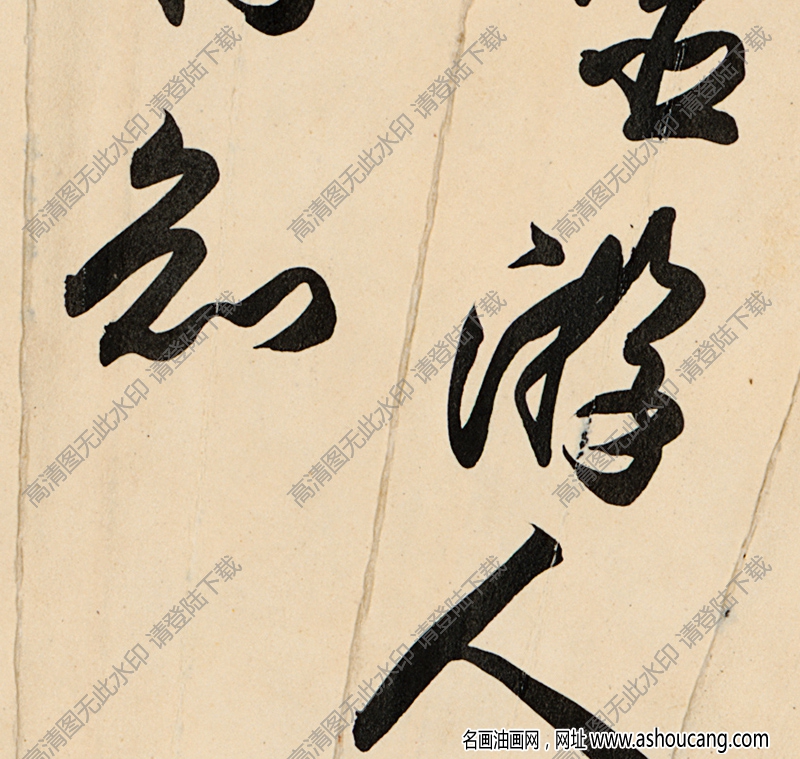 游人
知
高清图无此水印 请登陆下载
高清图无此水印 请登陆下载
高清图无此水印 请登陆下载
高清图无此水印 请登陆下载
高清图无此水印 请登陆下载
高清图无此水印 请登陆下载
高清图无此水印 请登陆下载
高清图无此水印 请登陆下载
高清图无此水印 请登陆下载
名画油画网，网址 www.ashoucang.com